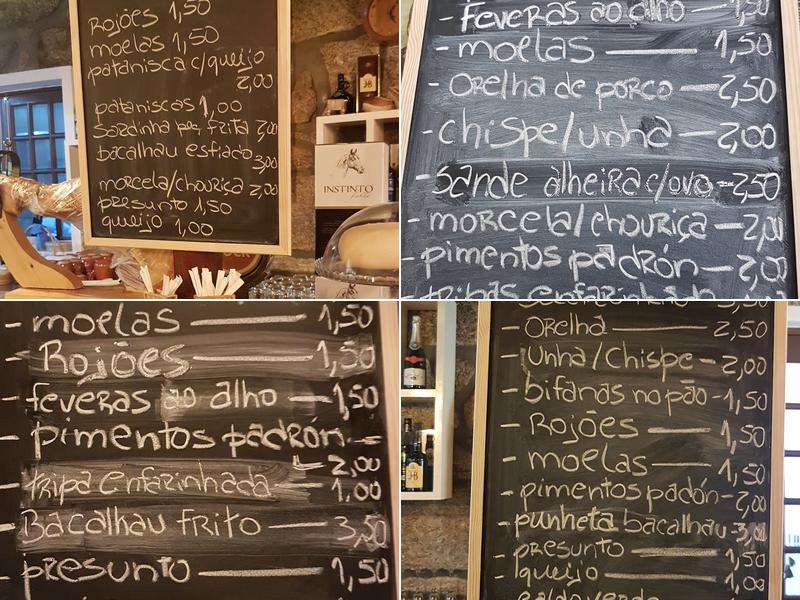 Rojões 1,50
moelas 1,50
patanisca c/queijo
2,00
pataniscas 1,00
Sardinha peq frita 2,00
bacalhau esfiado
3,00
morcela/chouriça 2,00
presunto 1,50
queijo 1,00
INSTINTO
- Feveras ao alho - 1,50
- moelas - 1,50
- Orelha de porco - 2,50
- chispe/unha - 2,00
- Sande alheira c/ovo - 2,50
- morcela/chouriça - 2,00
- pimentos padrón - 2,00
- moelas - 1,50
- Rojões - 1,50
- feveras ao alho - 1,50
- pimentos padrón -
2,00
- tripa enfarinhada - 1,00
- Bacalhau frito - 3,50
- presunto - 1,50
- Orelha - 2,50
- Unha/Chispe - 2,00
- bifanas no pão - 1,50
- Rojões - 1,50
- moelas - 1,50
- pimentos padón - 2,00
- punheta bacalhau - 3,00
- presunto - 1,50
- queijo - 1,00
J&B